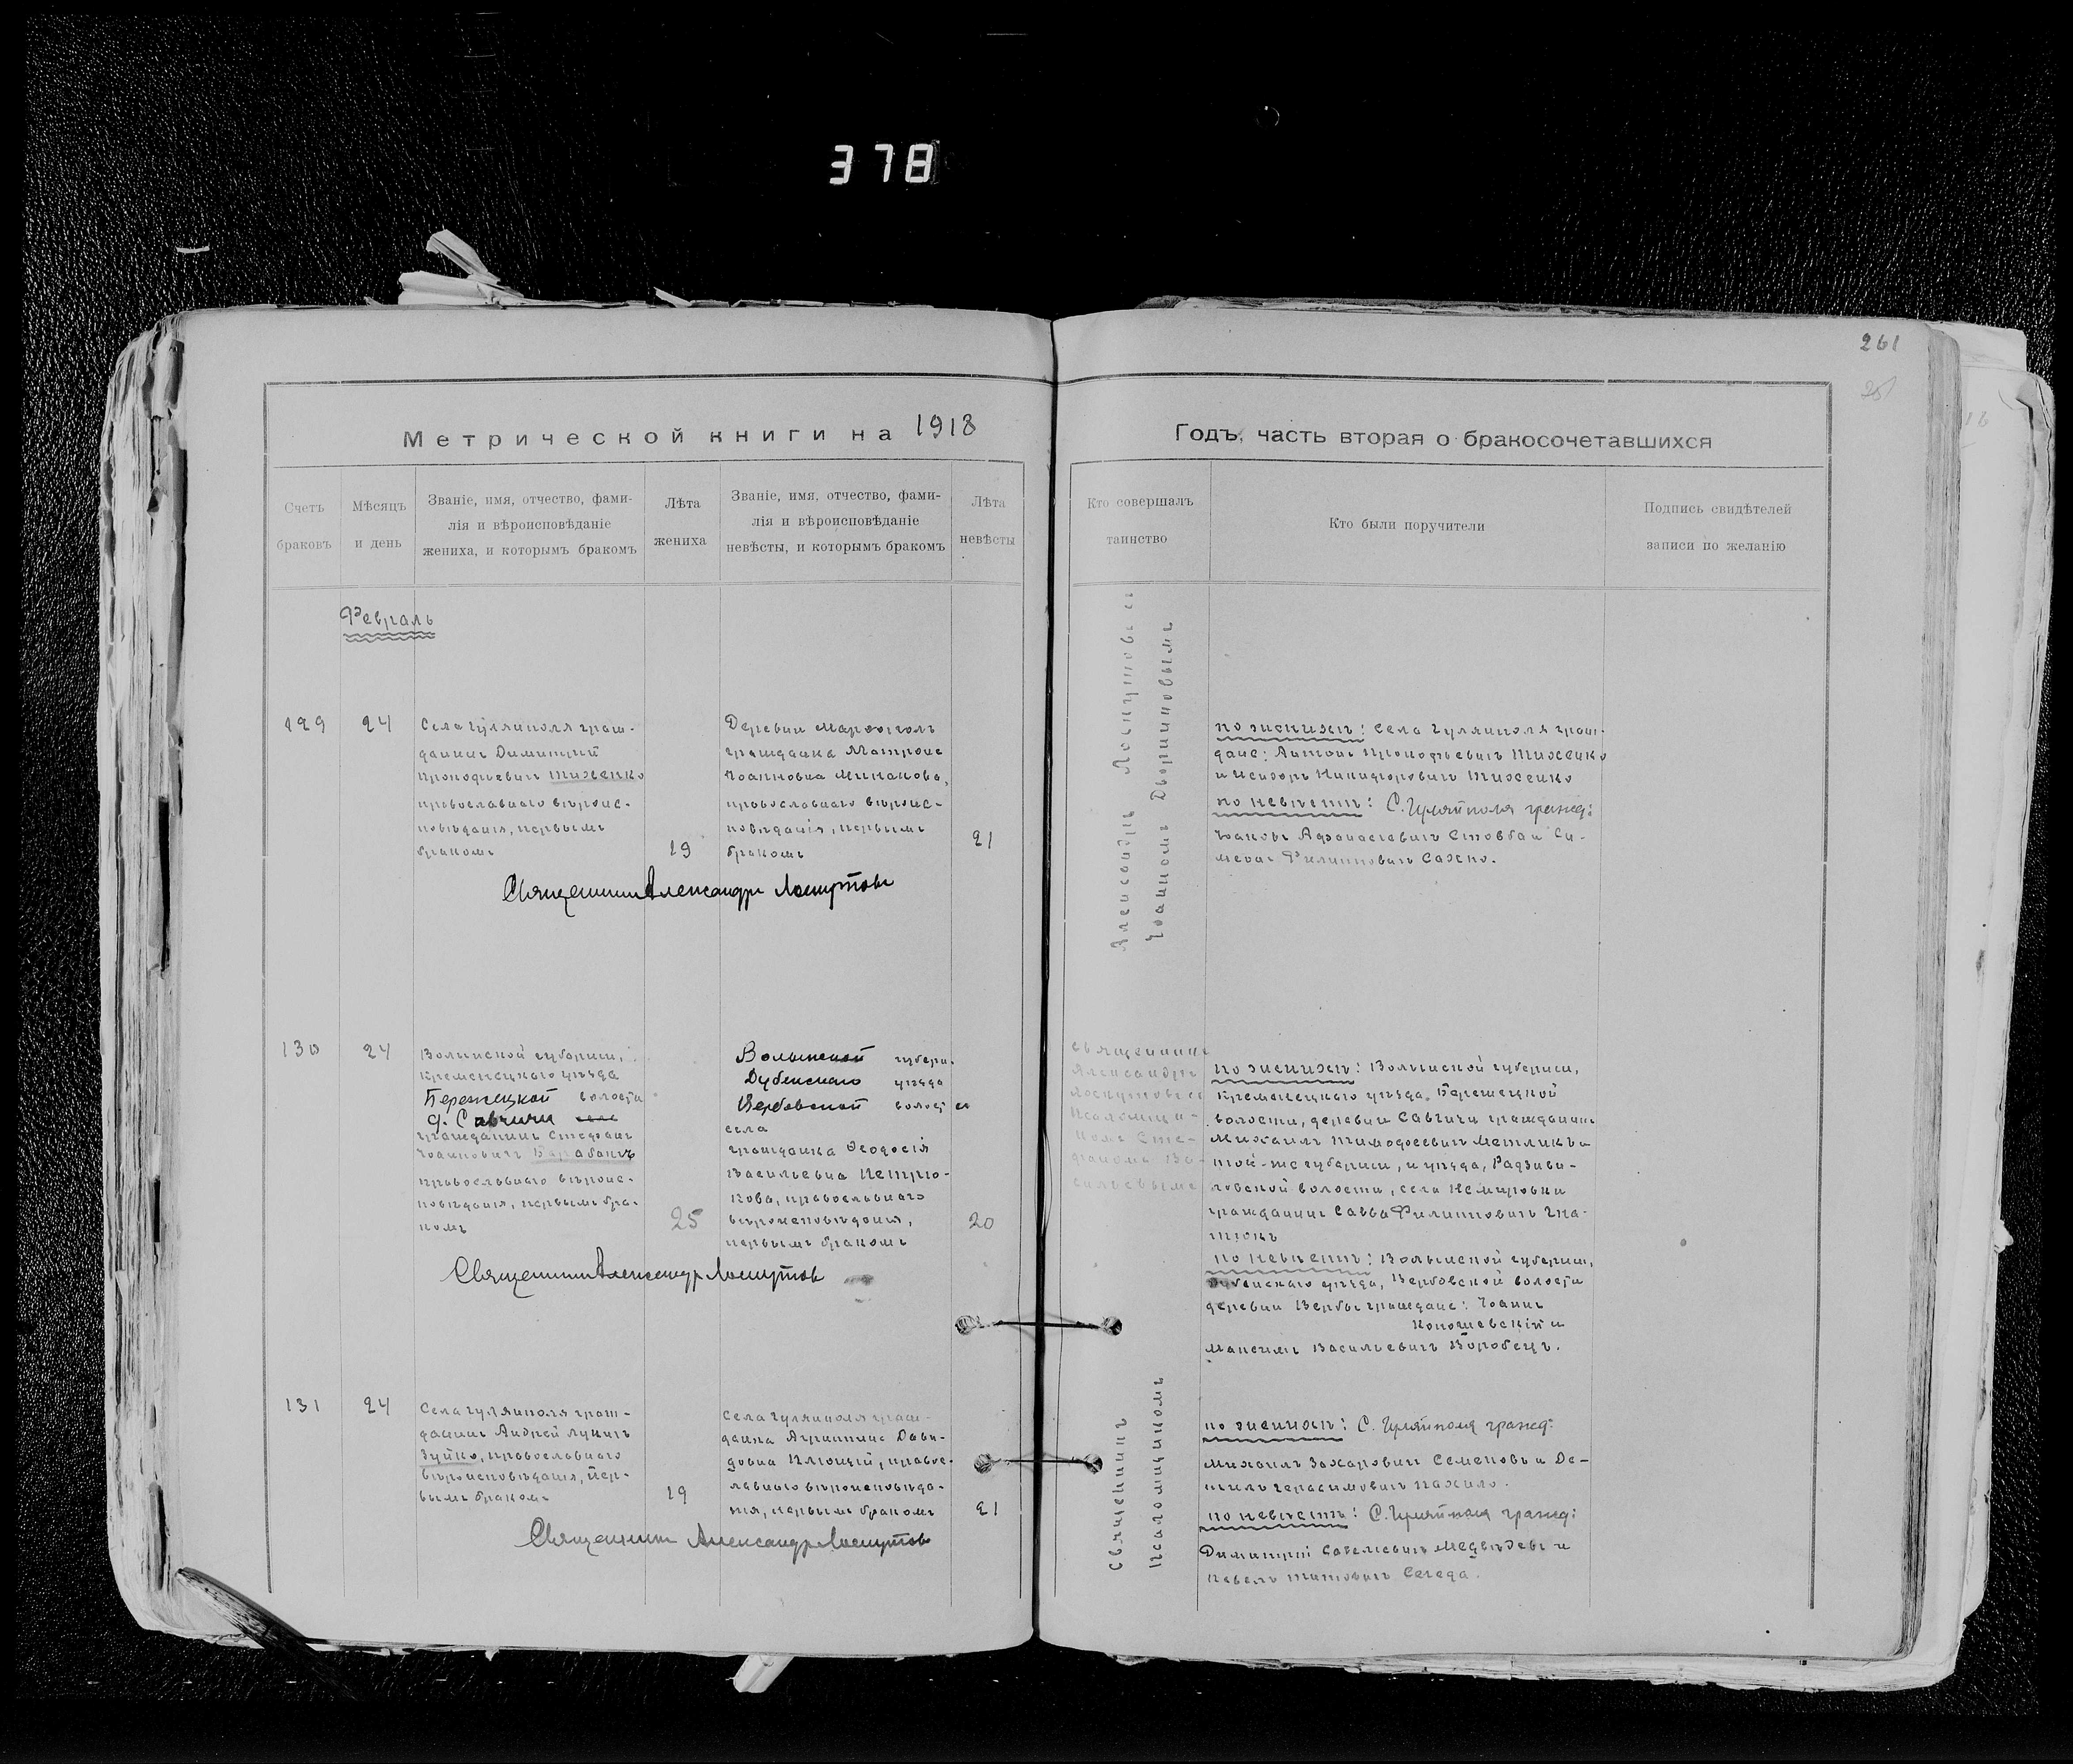 378
261
Метрической книги на 1918
Годъ, часть вторая о бракосочетавшихся
Счетъ браковъ
Мѣсяцъ и день
Званіе, имя, отчество, фами-
лія и вѣроисповѣданіе
жениха, и которымъ бракомъ
Лѣта жениха
Званіе, имя, отчество, фами-
лія и вѣроисповѣданіе
невѣсты, и которымъ бракомъ
Лѣта невѣсты
Кто совершалъ таинство
Кто были поручители
Подпись свидѣтелей
записи по желанію
Февраль
129
24
Села Гуляйполя граж-
данинъ Димитрій
Прокофьевичъ Тихенко
православнаго вѣроис-
повѣданія, первымъ
бракомъ
19
Деревни
гражданка Матрона
Іоанновна Минакова,
православнаго вѣроис-
повѣданія, первымъ
бракомъ
21
Священникъ Александръ Лоскутовъ
Александръ Лоскутовъ
Іоанномъ Дворниковымъ
по женихѣ: Села Гуляйполя граж-
дане: Антонъ Прокофьевичъ Тихенко
и Исидоръ Никифоровичъ Тихенко
по невѣстѣ: С. Гуляйполя гражд:
Іаковъ Афанасіевичъ Стовба и Си-
меонъ Филипповичъ Сахно.
130
24
Волынской губерніи,
Кременецкаго уѣзда
Бережецкой волости
д. Савчичи
гражданинъ Стефанъ
Іоанновичъ Барабашъ
православнаго вѣроис-
повѣданія, первымъ бра-
комъ
25
Волынской губерн.
Дубенскаго уѣзда
Вербовской волости
села
гражданка Ѳеодосія
Васильевна Петрю-
кова, православнаго
вѣроисповѣданія,
первымъ бракомъ
20
Священникъ Александръ Лоскутовъ
Священникъ
Александръ
Лоскутовъ съ
Псаломщи-
комъ Сте-
фаномъ Ва-
сильевымъ
по женихѣ: Волынской губерніи,
Кременецкаго уѣзда, Бережецкой
волости, деревни Савчичи гражданинъ
Михаилъ Тимофеевичъ Метликъ и
той-же губерніи, и уѣзда, Радзиви-
ловской волости, села Немировки
гражданинъ Савва Филипповичъ Гна-
тюкъ
по невѣстѣ: Волынской губерніи,
Дубенскаго уѣзда, Вербовской волости
деревни Вербы граждане: Іоаннъ
Коношевскій и
Максимъ Васильевичъ Воробецъ.
131
24
Села Гуляйполя граж-
данинъ Андрей Лукичъ
Зуйко, православнаго
вѣроисповѣданія, пер-
вымъ бракомъ
19
Села Гуляйполя граж-
данка Агриппина Дави-
довна Клюцій, правос-
лавнаго вѣроисповѣда-
нія, первымъ бракомъ
21
Священникъ Александръ Лоскутовъ
Священникъ
Псаломщикомъ
по женихѣ: С. Гуляйполя гражд:
Михаилъ Захаровичъ Семеновъ и Да-
ніилъ Герасимовичъ Махило.
по невѣстѣ: С. Гуляйполя гражд:
Димитрій Савельевичъ Медвѣдевъ и
Павелъ Титовичъ Сегеда.